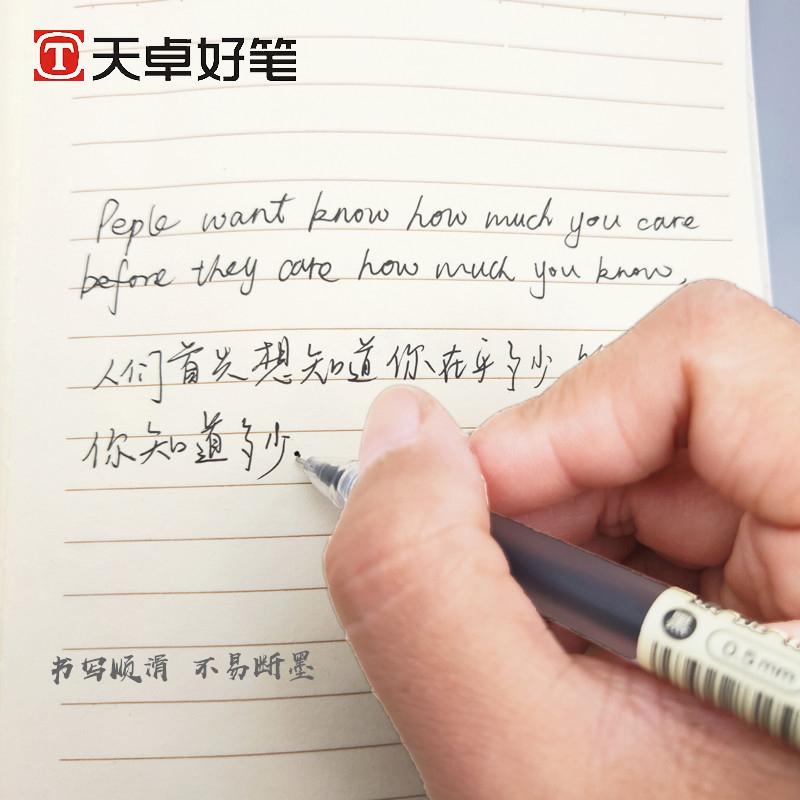 T 天卓好笔
Peple want know how much you care
before they care how much you know,
人们首先想知道你在乎多少
你知道多少.
书写顺滑 不易断墨
黑 0.5mm